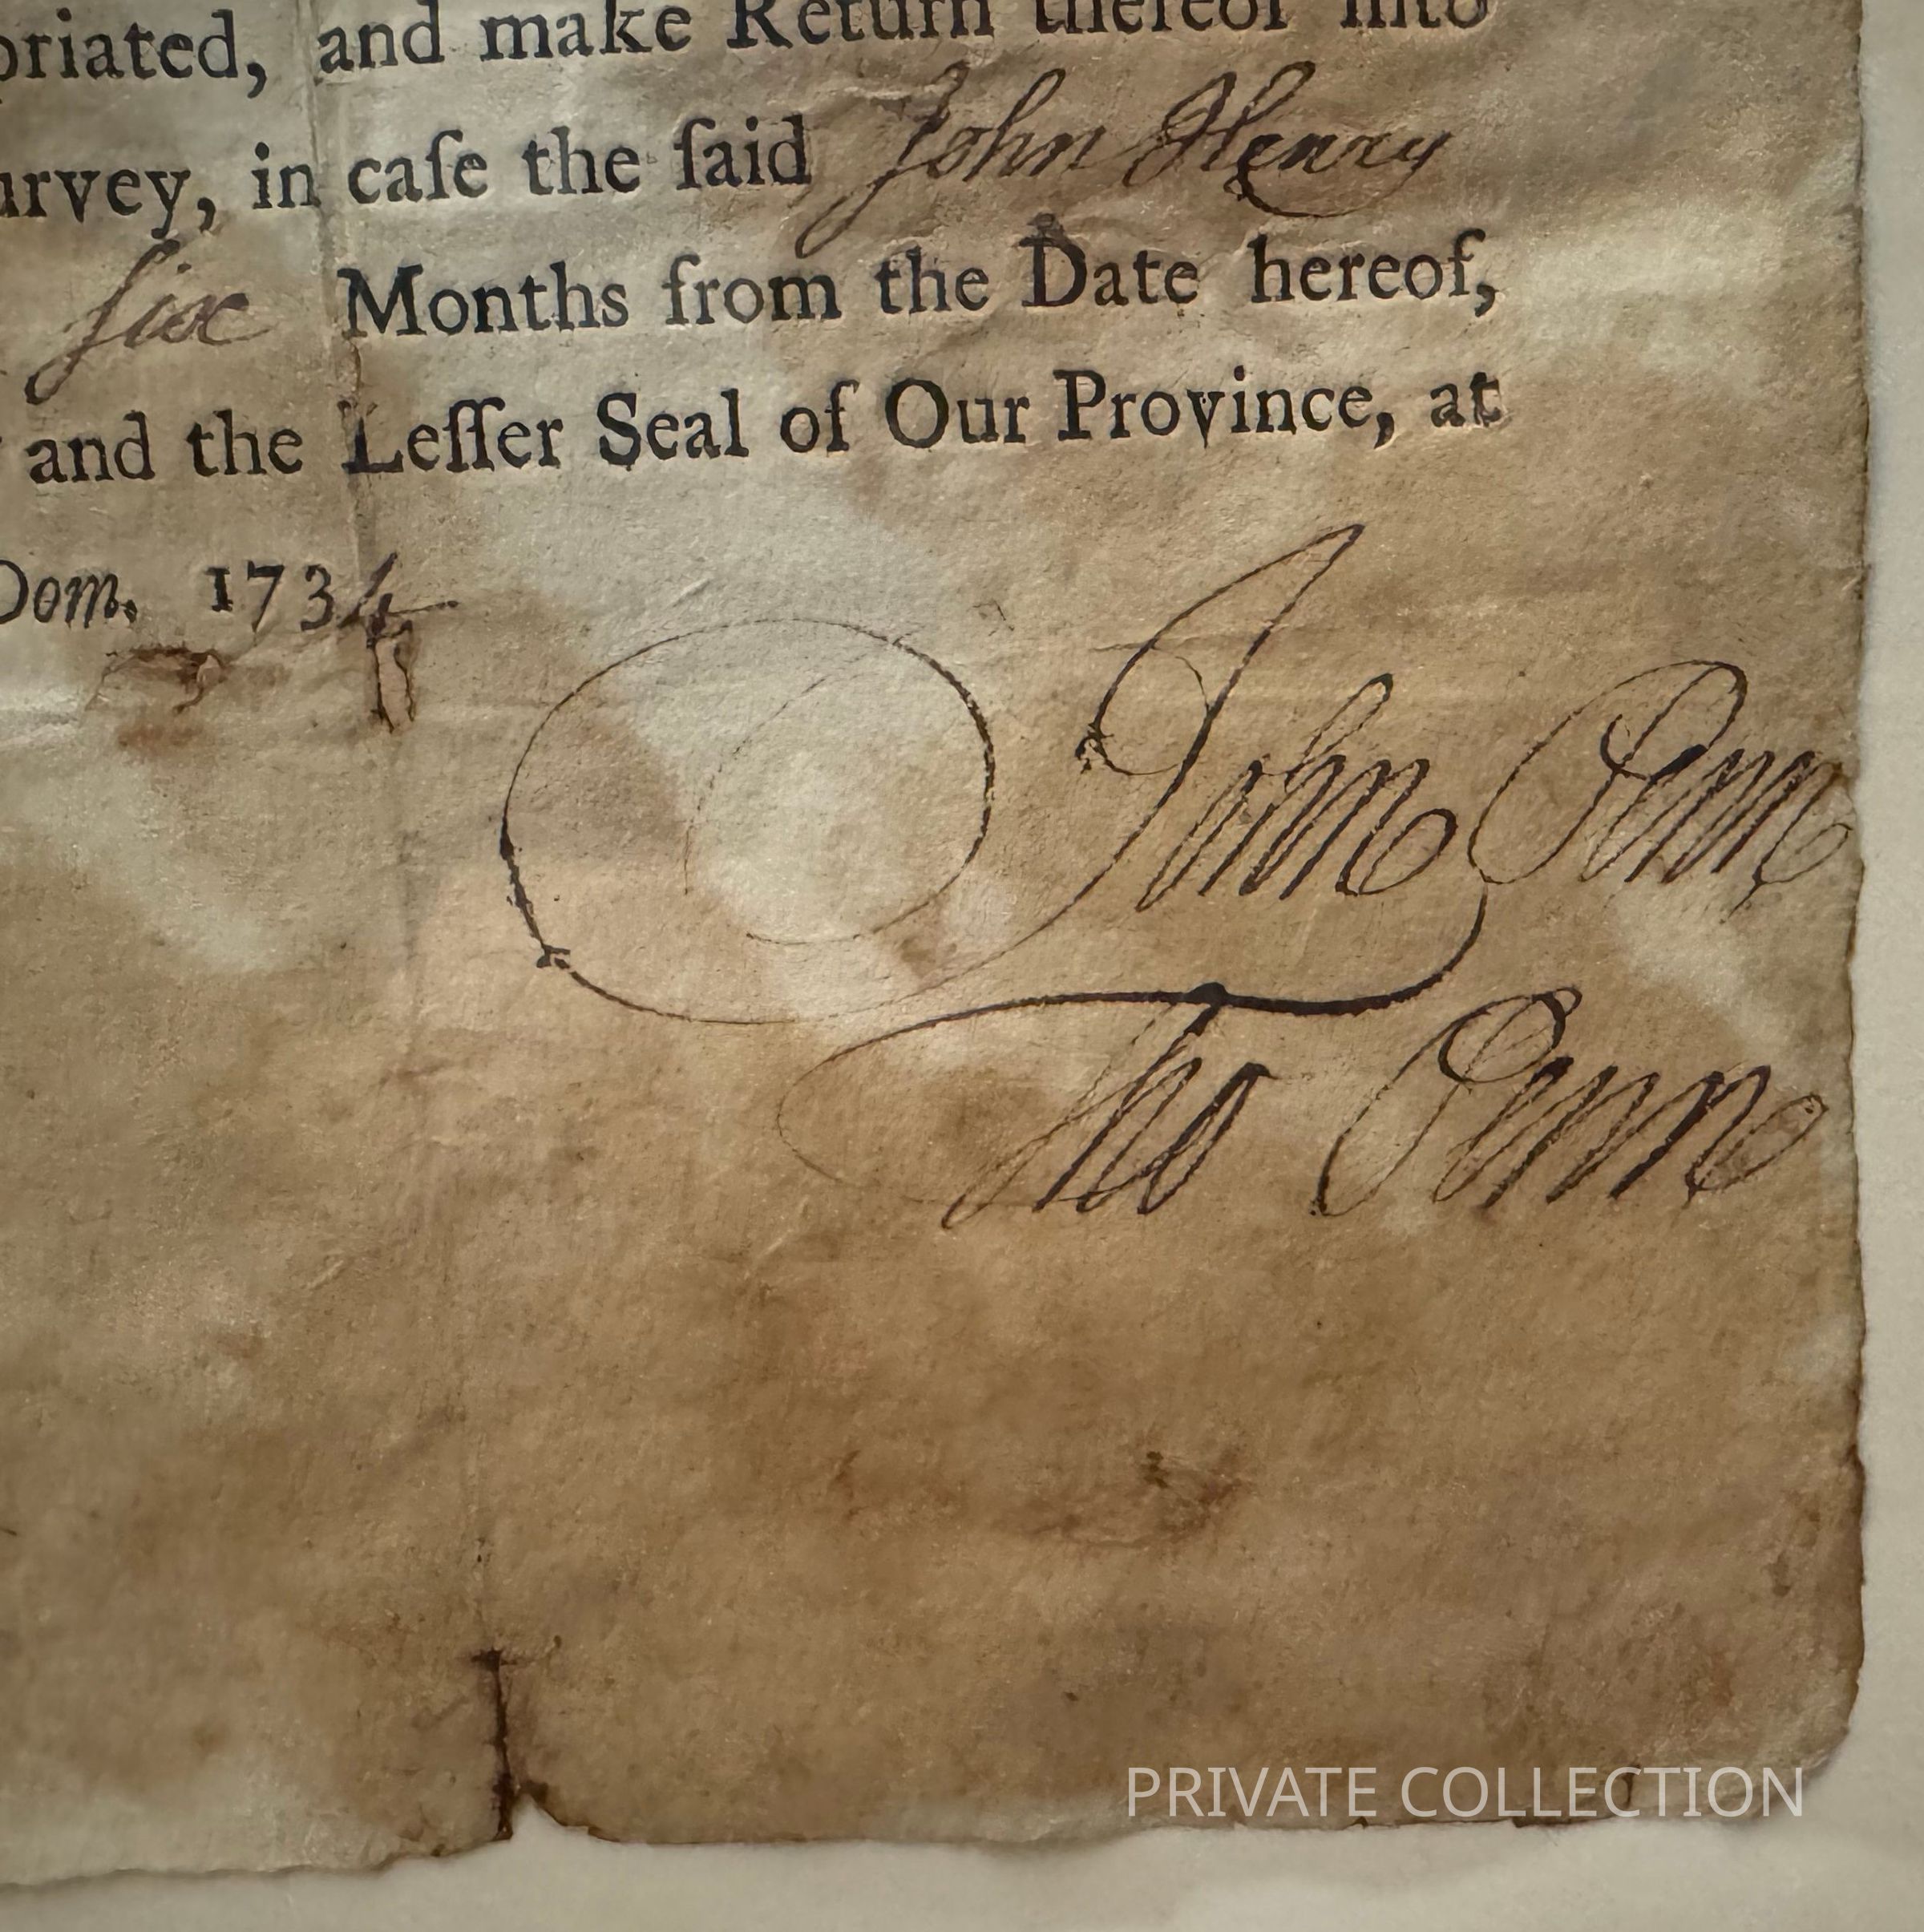 oriated, and make Return thereof into
urvey, in caſe the ſaid John Henry
ſix Months from the Date hereof,
and the Leſſer Seal of Our Province, at
Dom. 1734
John Penn
Tho Penn
PRIVATE COLLECTION